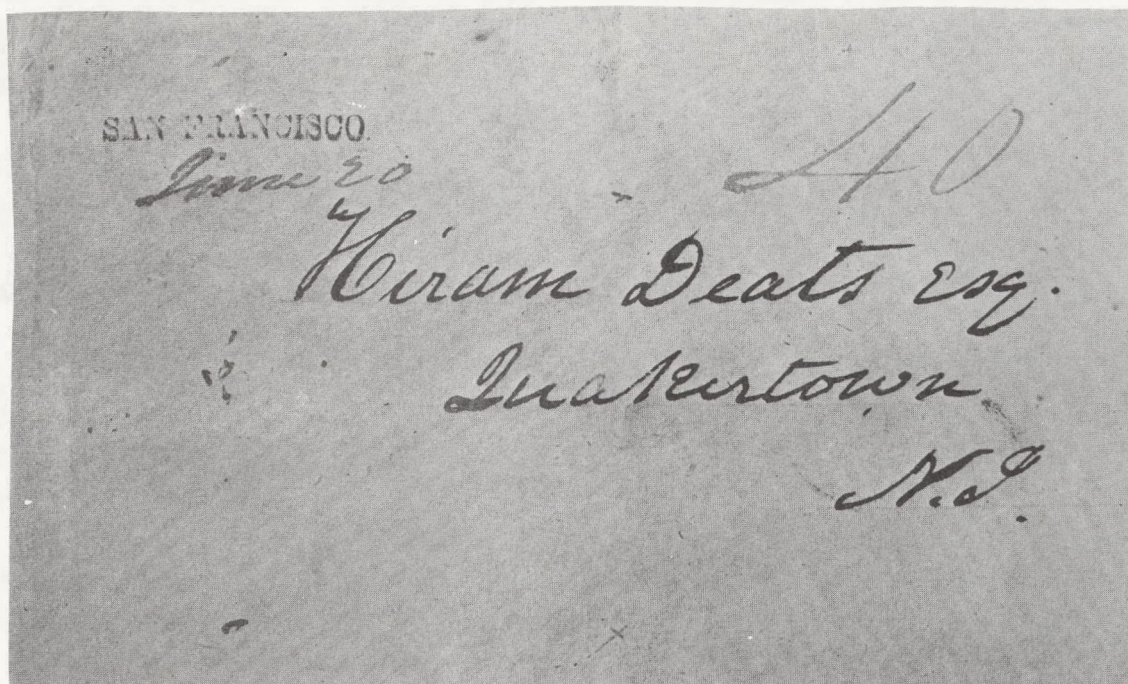 SAN FRANCISCO
June 20
40
Hiram Deats Esq.
Quakertown
N.J.